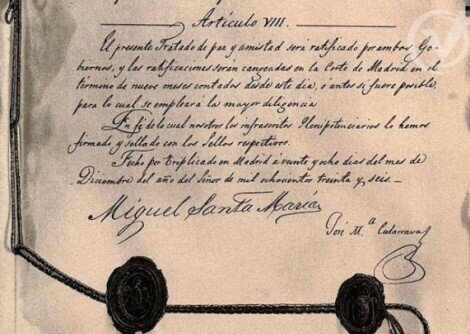 Artículo VIII.
El presente Tratado de paz y amistad será ratificado por ambos Go-
biernos, y las ratificaciones serán cangeadas en la Corte de Madrid en el
término de nueve meses contados desde este dia, ó antes si fuere posible,
para lo cual se empleará la mayor diligencia
En fé de lo cual nosotros los infrascritos Plenipotenciarios lo hemos
firmado y sellado con los Sellos respectivos.
Fecho por triplicado en Madrid a veinte y ocho dias del mes de
Diciembre del año del Señor de mil ochocientos treinta y seis.
Miguel Santa María
José M.ª Calatrava